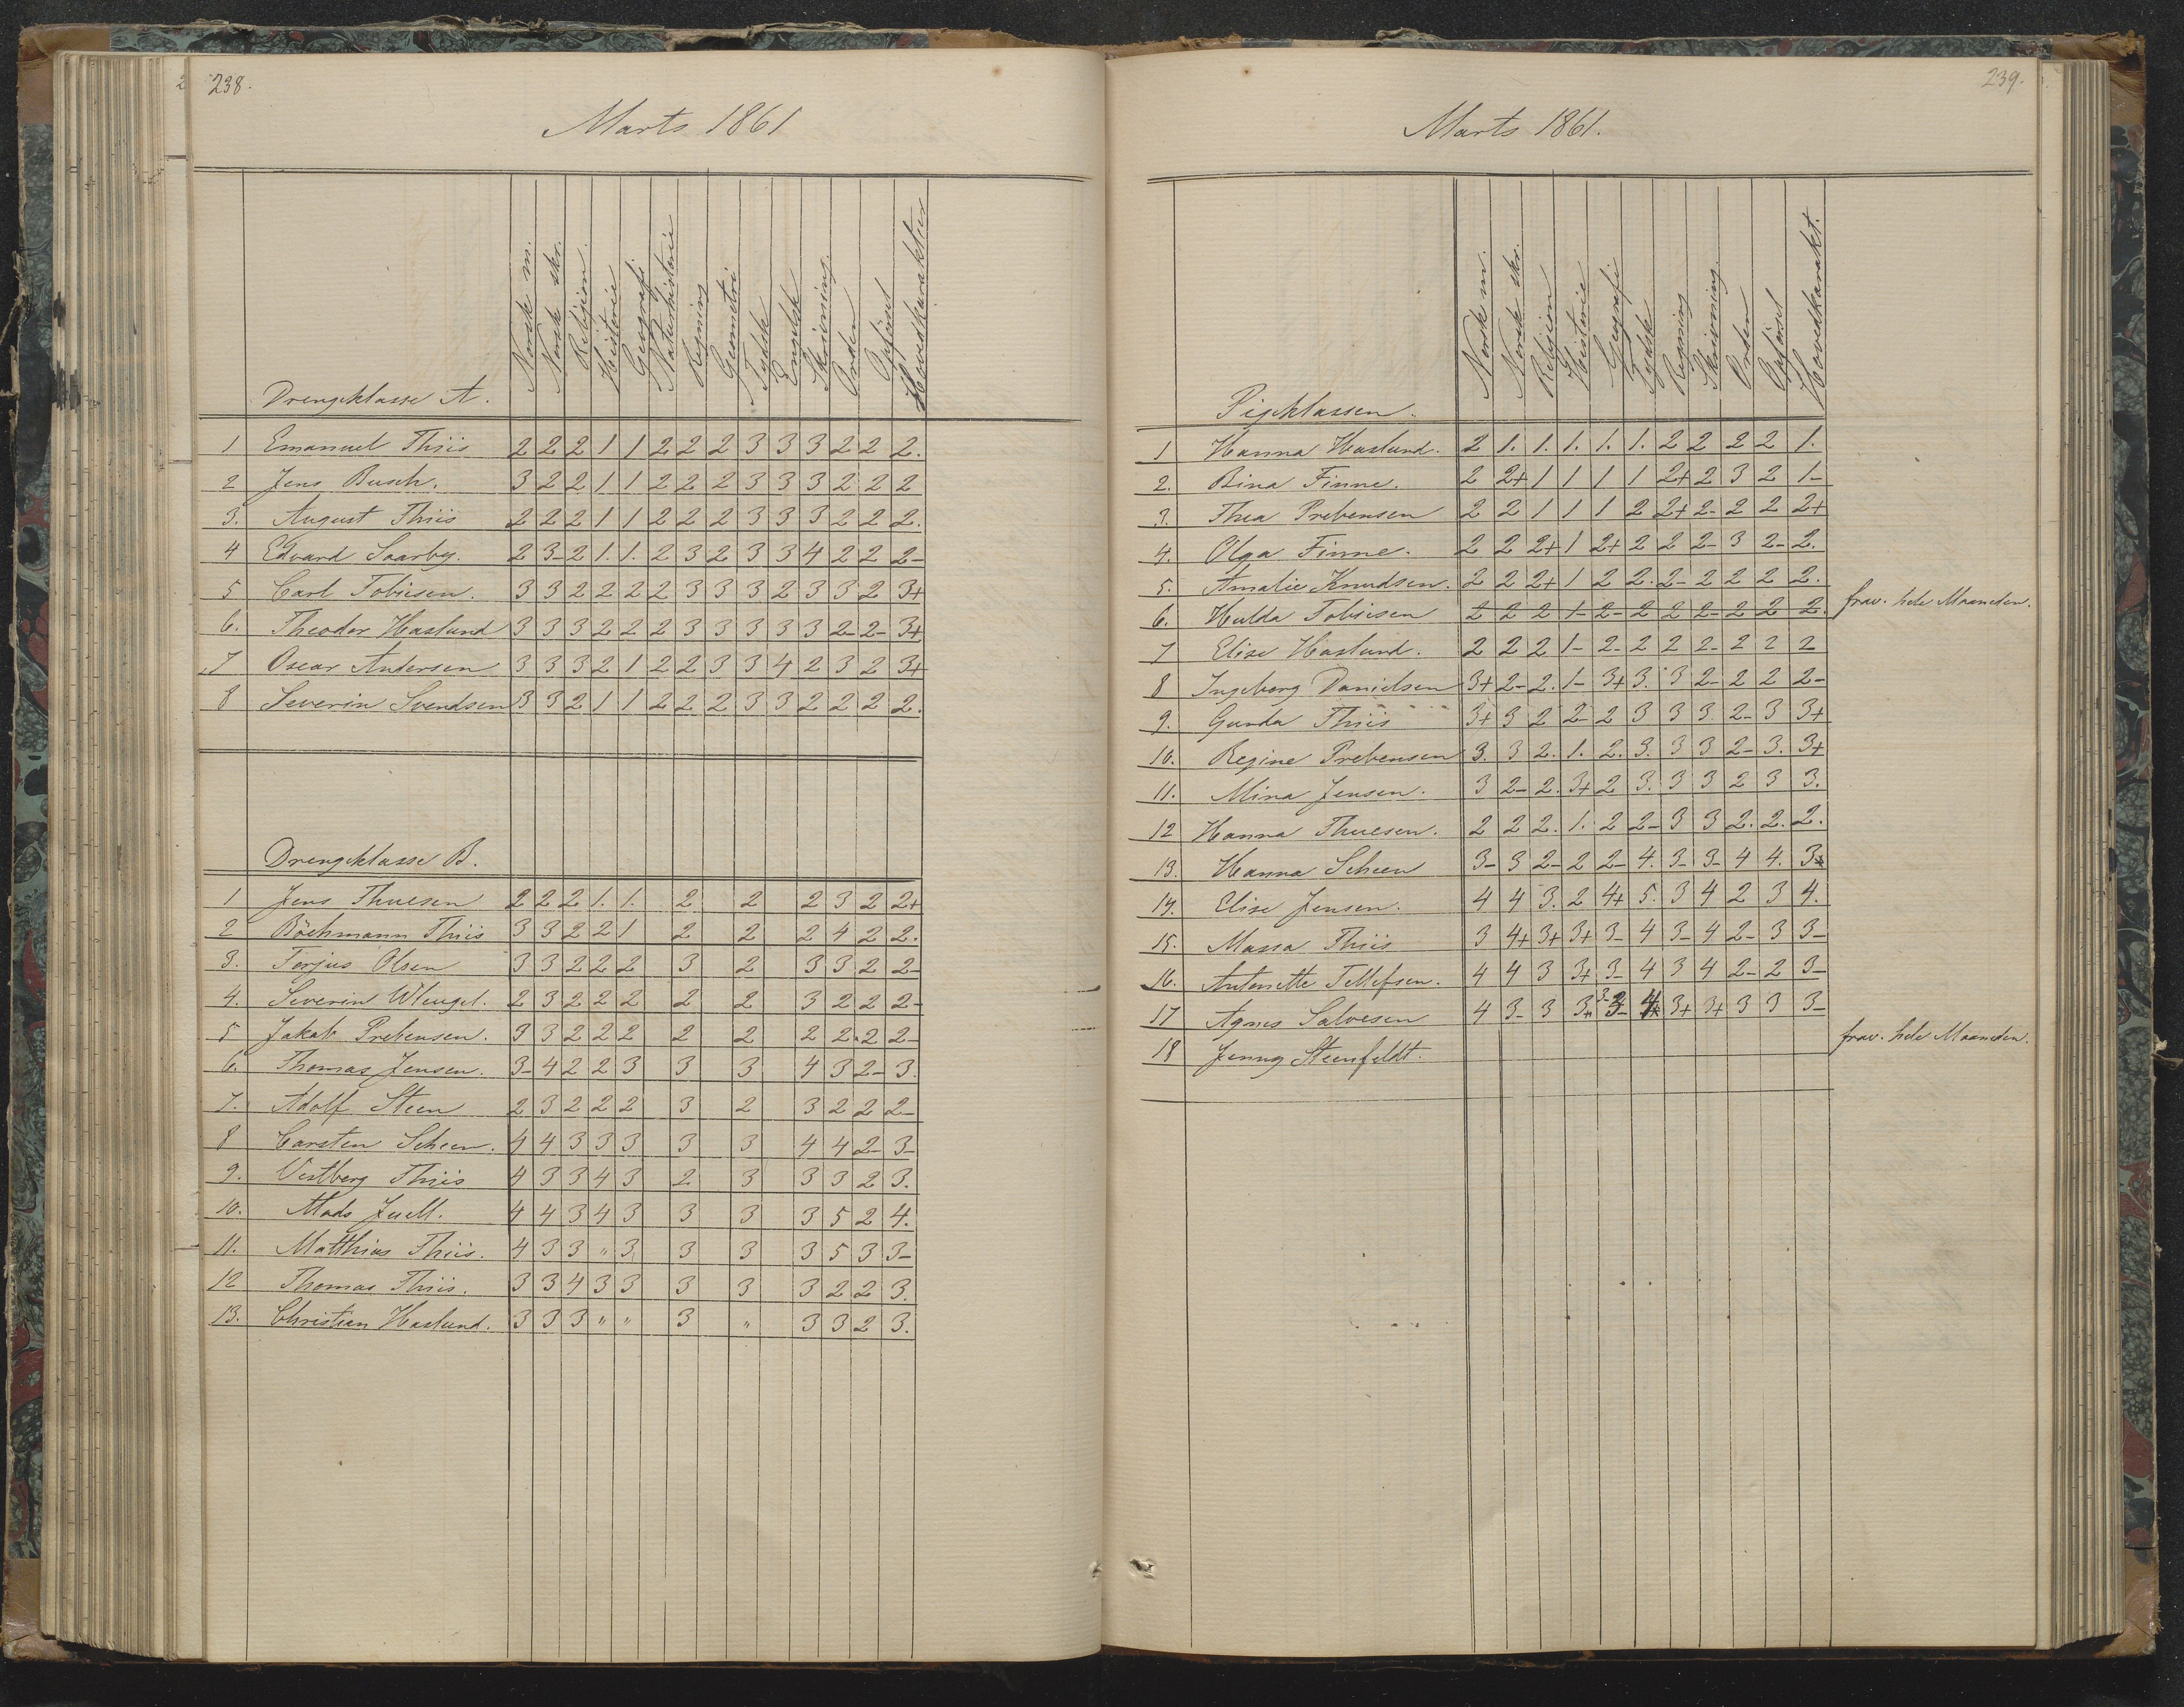 238.
Marts 1861
Drengeklasse A.
Norsk m.
Norsk skr.
Religion.
Historie
Geografi
Naturhistorie
Regning
Geometri
Tydsk
Engelsk
Skrivning.
Orden
Opførsel
Hovedkarakter
1 Emanuel Thiis 2 2 2 1 1 2 2 2 3 3 3 2 2 2.
2 Jens Busch. 3 2 2 1 1 2 2 2 3 3 3 2 2 2
3. August Thiis 2 2 2 1 1 2 2 2 3 3 3 2 2 2.
4 Edvard Saarby. 2 3- 2 1. 1. 2 3 2 3 3 4 2 2 2-
5 Carl Tobiesen. 3 3 2 2 2 2 3 3 3 2 3 3 2 3+
6. Theodor Haslund 3 3 3 2 2 2 3 3 3 3 3 2- 2- 3+
7 Oscar Andersen 3 3 3 2 1 2 2 3 3 4 2 3 2 3+
8 Severin Svendsen 3 3 2 1 1 2 2 2 3 3 2 2 2 2.
Drengeklasse B.
1 Jens Thuesen 2 2 2 1. 1. 2 2 2 3 2 2+
2 Böchmann Thiis 3 3 2 2 1 2 2 2 4 2 2.
3. Terjus Olsen 3 3 2 2 2 3 2 3 3 2 2-
4. Severin Wleugel. 2 3 2 2 2 2 2 3 2 2 2-
5 Jakob Prebensen. 3 3 2 2 2 2 2 2 2. 2 2-
6. Thomas Jensen. 3- 4 2 2 3 3 3 4 3 2- 3.
7. Adolf Steen 2 3 2 2 2 3 2 3 2 2 2-
8 Carsten Scheen. 4 4 3 3 3 3 3 4 4 2- 3-
9. Vestberg Thiis 4 3 3 4 3 2 3 3 3 2 3.
10. Mads Juell. 4 4 3 4 3 3 3 3 5 2 4.
11. Matthias Thiis. 4 3 3 " 3 3 3 3 5 3 3-
12 Thomas Thiis. 3 3 4 3 3 3 3 3 2 2 3.
13. Christian Haslund. 3 3 3 " " 3 " 3 3 2 3.
239.
Marts 1861.
Pigeklassen.
Norsk m.
Norsk skr.
Religion
Historie
Geografi
Tydsk
Regning
Skrivning.
Orden
Opførsel
Hovedkarakt.
1 Hanna Haslund. 2 1. 1. 1. 1. 1. 2 2 2 2 1.
2. Bina Finne. 2 2+ 1 1 1 1 2+ 2 3 2 1-
3. Thea Prebensen 2 2 1 1 1 2 2+ 2- 2 2 2+
4. Olga Finne. 2 2 2+ 1 2+ 2 2 2- 3 2- 2.
5. Amalie Knudsen. 2 2 2+ 1 2 2. 2- 2 2 2 2.
6. Hulda Tobiesen 2 2 2 1- 2- 2 2 2- 2 2 2. frav. hele Maaneden.
7 Elise Haslund. 2 2 2 1- 2- 2 2 2- 2 2 2
8 Ingeborg Danielsen 3+ 2- 2. 1- 3+ 3. 3 2- 2 2 2-
9. Gunda Thiis 3+ 3 2 2- 2 3 3 3 2- 3 3+
10. Regine Prebensen 3. 3 2. 1. 2. 3. 3 3 2- 3. 3+
11. Mina Jensen. 3 2- 2. 3+ 2 3. 3 3 2 3 3.
12 Hanna Thuesen. 2 2 2. 1. 2 2- 3 3 2. 2. 2.
13. Hanna Scheen 3- 3 2- 2 2- 4. 3- 3- 4 4. 3
14. Elise Jensen. 4 4 3. 2 4+ 5. 3 4 2 3 4.
15. Massa Thiis 3 4+ 3+ 3+ 3- 4 3- 4 2- 3 3-
16. Antonette Tellefsen. 4 4 3 3+ 3- 4 3 4 2- 2 3-
17 Agnes Salvesen 4 3- 3 3+ 3- 4 3+ 3+ 3 3 3-
18 Jenny Steenfeldt. frav. hele Maaneden.